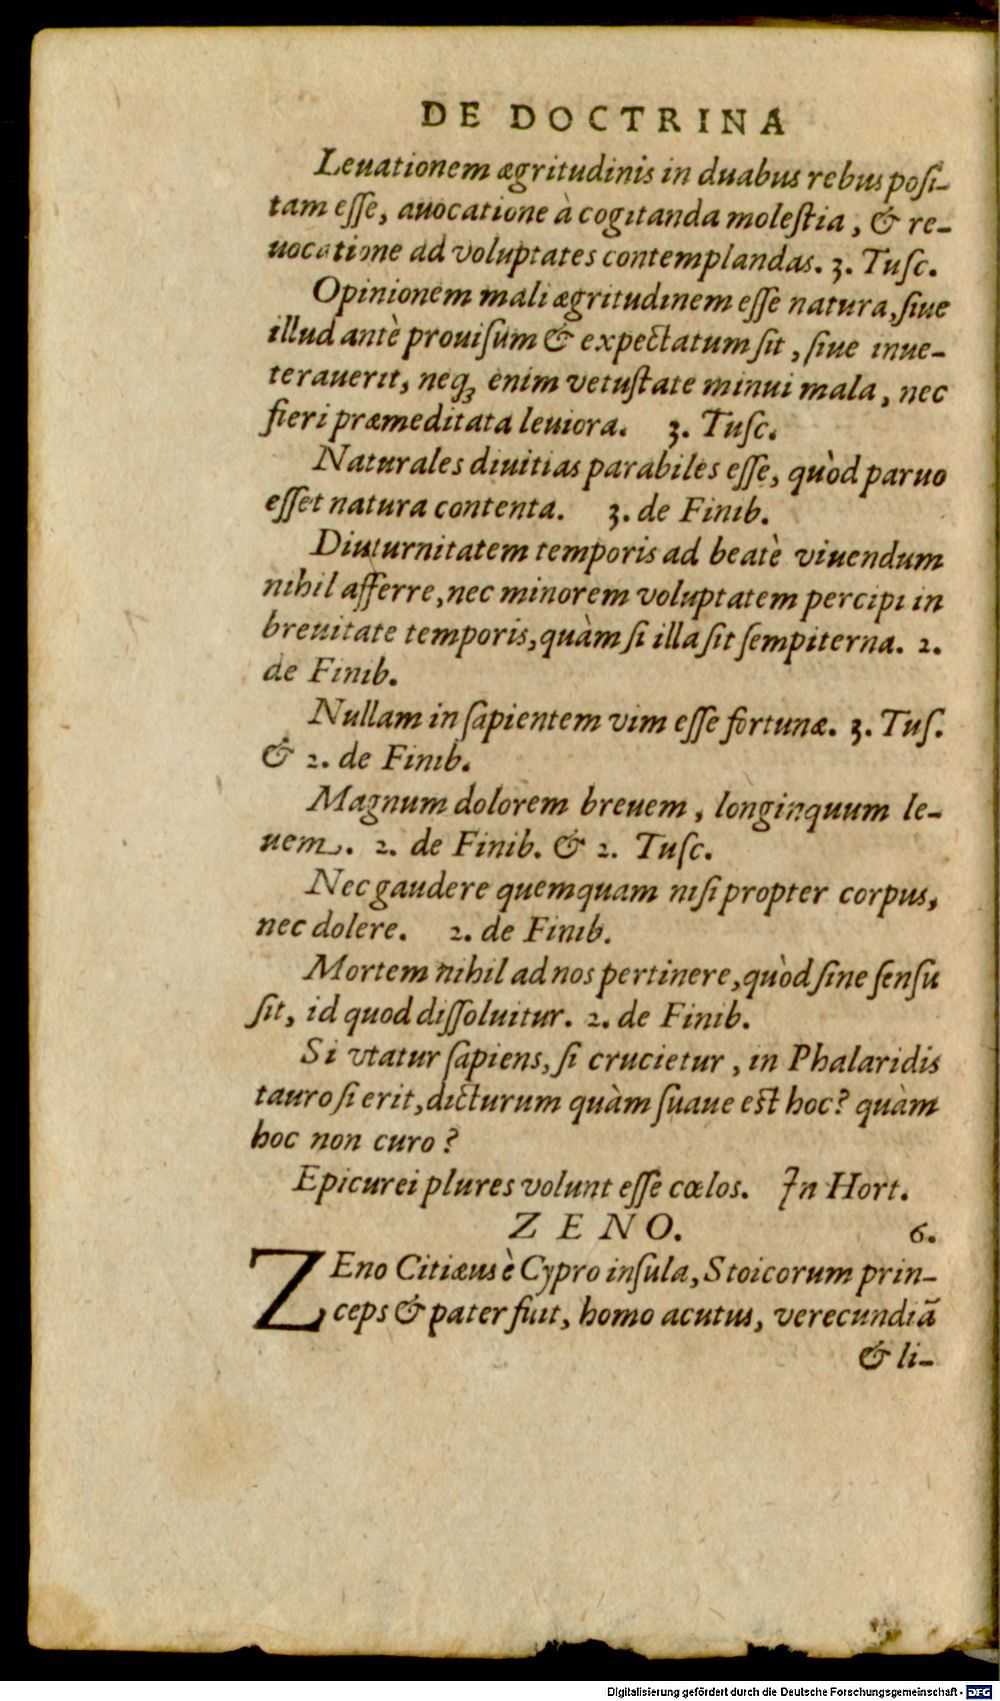 DE DOCTRINA
Leuationem ægritudinis in duabus rebus posi-
tam esse, auocatione à cogitanda molestia, & re-
uocatione ad voluptates contemplandas. 3. Tusc.
Opinionem mali ægritudinem esse natura, siue
illud antè prouisum & expectatum sit, siue inue-
terauerit, neq; enim vetustate minui mala, nec
fieri præmeditata leuiora. 3. Tusc.
Naturales diuitias parabiles esse, quòd paruo
esset natura contenta. 3. de Finib.
Diuturnitatem temporis ad beatè viuendum
nihil afferre, nec minorem voluptatem percipi in
breuitate temporis, quàm si illa sit sempiterna. 2.
de Finib.
Nullam in sapientem vim esse fortunæ. 3. Tus.
& 2. de Finib.
Magnum dolorem breuem, longinquum le-
uem. 2. de Finib. & 2. Tusc.
Nec gaudere quemquam nisi propter corpus,
nec dolere. 2. de Finib.
Mortem nihil ad nos pertinere, quòd sine sensu
sit, id quod dissoluitur. 2. de Finib.
Si vtatur sapiens, si crucietur, in Phalaridis
tauro si erit, dicturum quàm suaue est hoc? quàm
hoc non curo?
Epicurei plures volunt esse cœlos. In Hort.
ZENO. 6.
ZEno Citiæus è Cypro insula, Stoicorum prin-
ceps & pater fuit, homo acutus, verecundiã
& li-
Digitalisierung gefördert durch die Deutsche Forschungsgemeinschaft - DFG